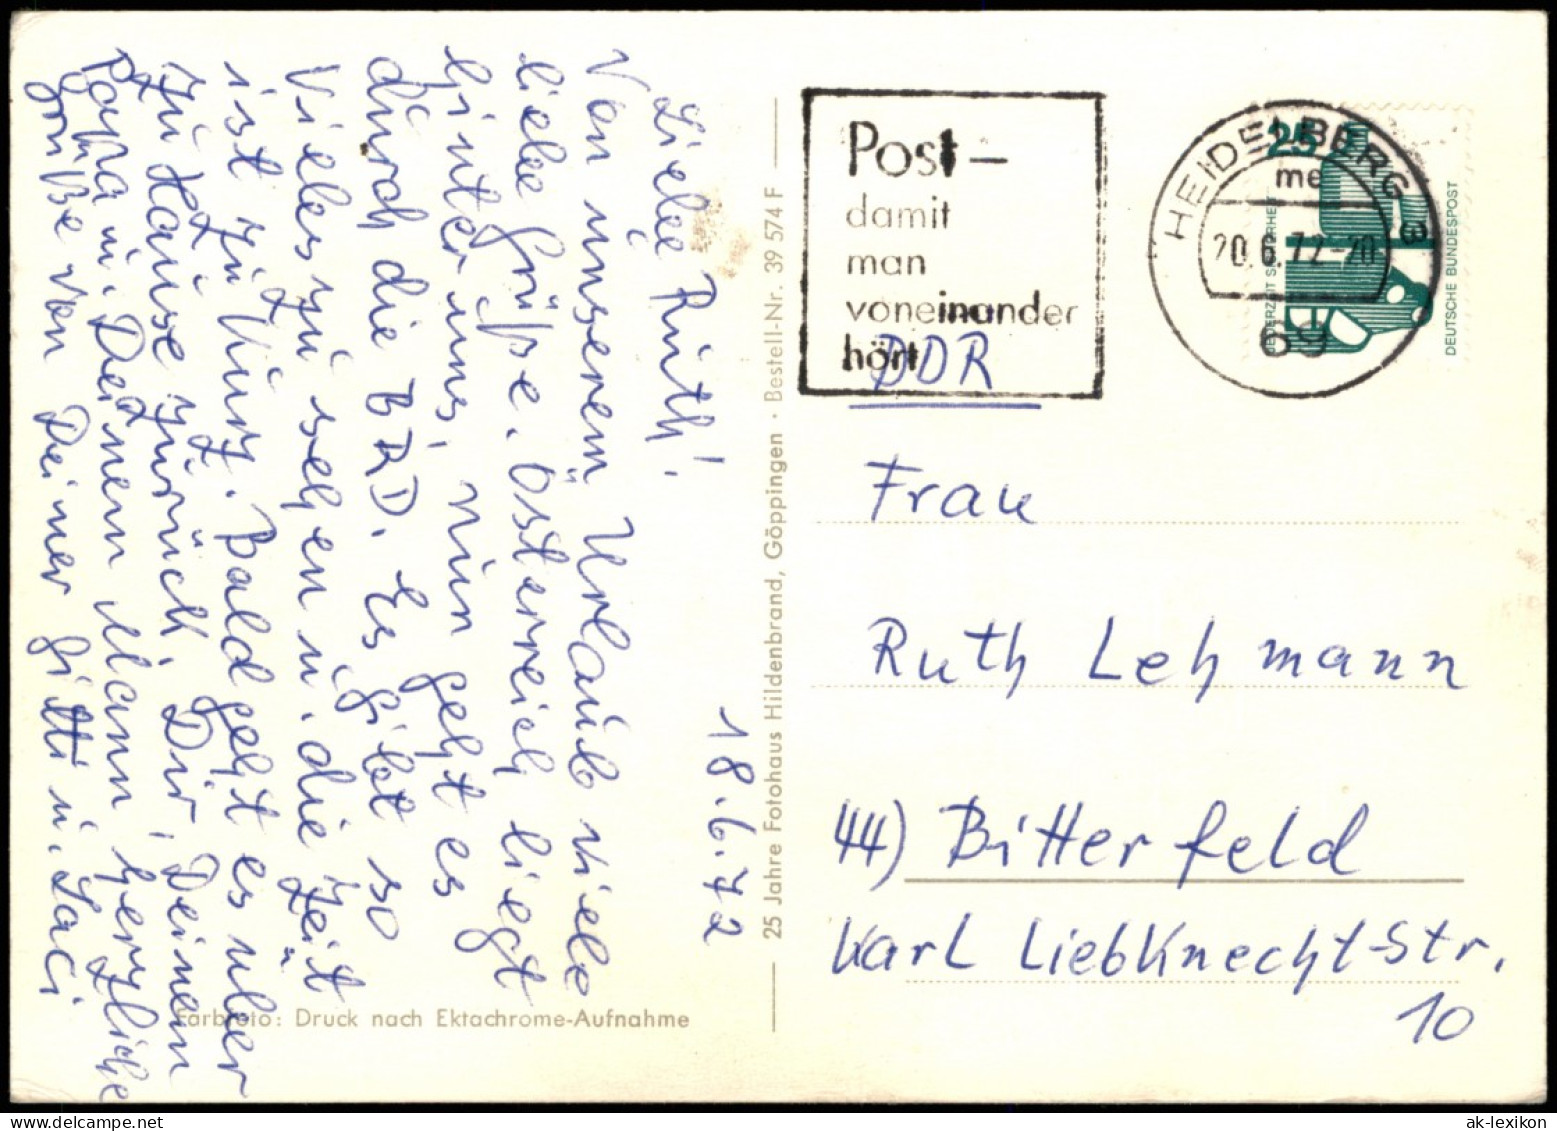 18.6.72
Liebe Ruth!
Von unserem Urlaub viele
liebe Grüße. Österreich liegt
hinter uns, nun geht es
durch die BRD. Es gibt so
vieles zu sehen u. die Zeit
ist zu kurz. Bald geht es über
zu Hause zurück. Dir, Deinem
Papa u. Deinem Mann, herzliche
Grüße von Deiner Gitti u. Laci
Farbfoto: Druck nach Ektachrome-Aufnahme
25 Jahre Fotohaus Hildenbrand, Göppingen · Bestell-Nr. 39 574 F
Post-
damit
man
voneinander
hört
HEIDELBERG 3
me
20.6.72-20
69
25
JEDERZEIT SICHERHEIT
DEUTSCHE BUNDESPOST
DDR
Frau
Ruth Lehmann
44) Bitterfeld
Karl Liebknecht-Str.
10
ak-lexikon.com